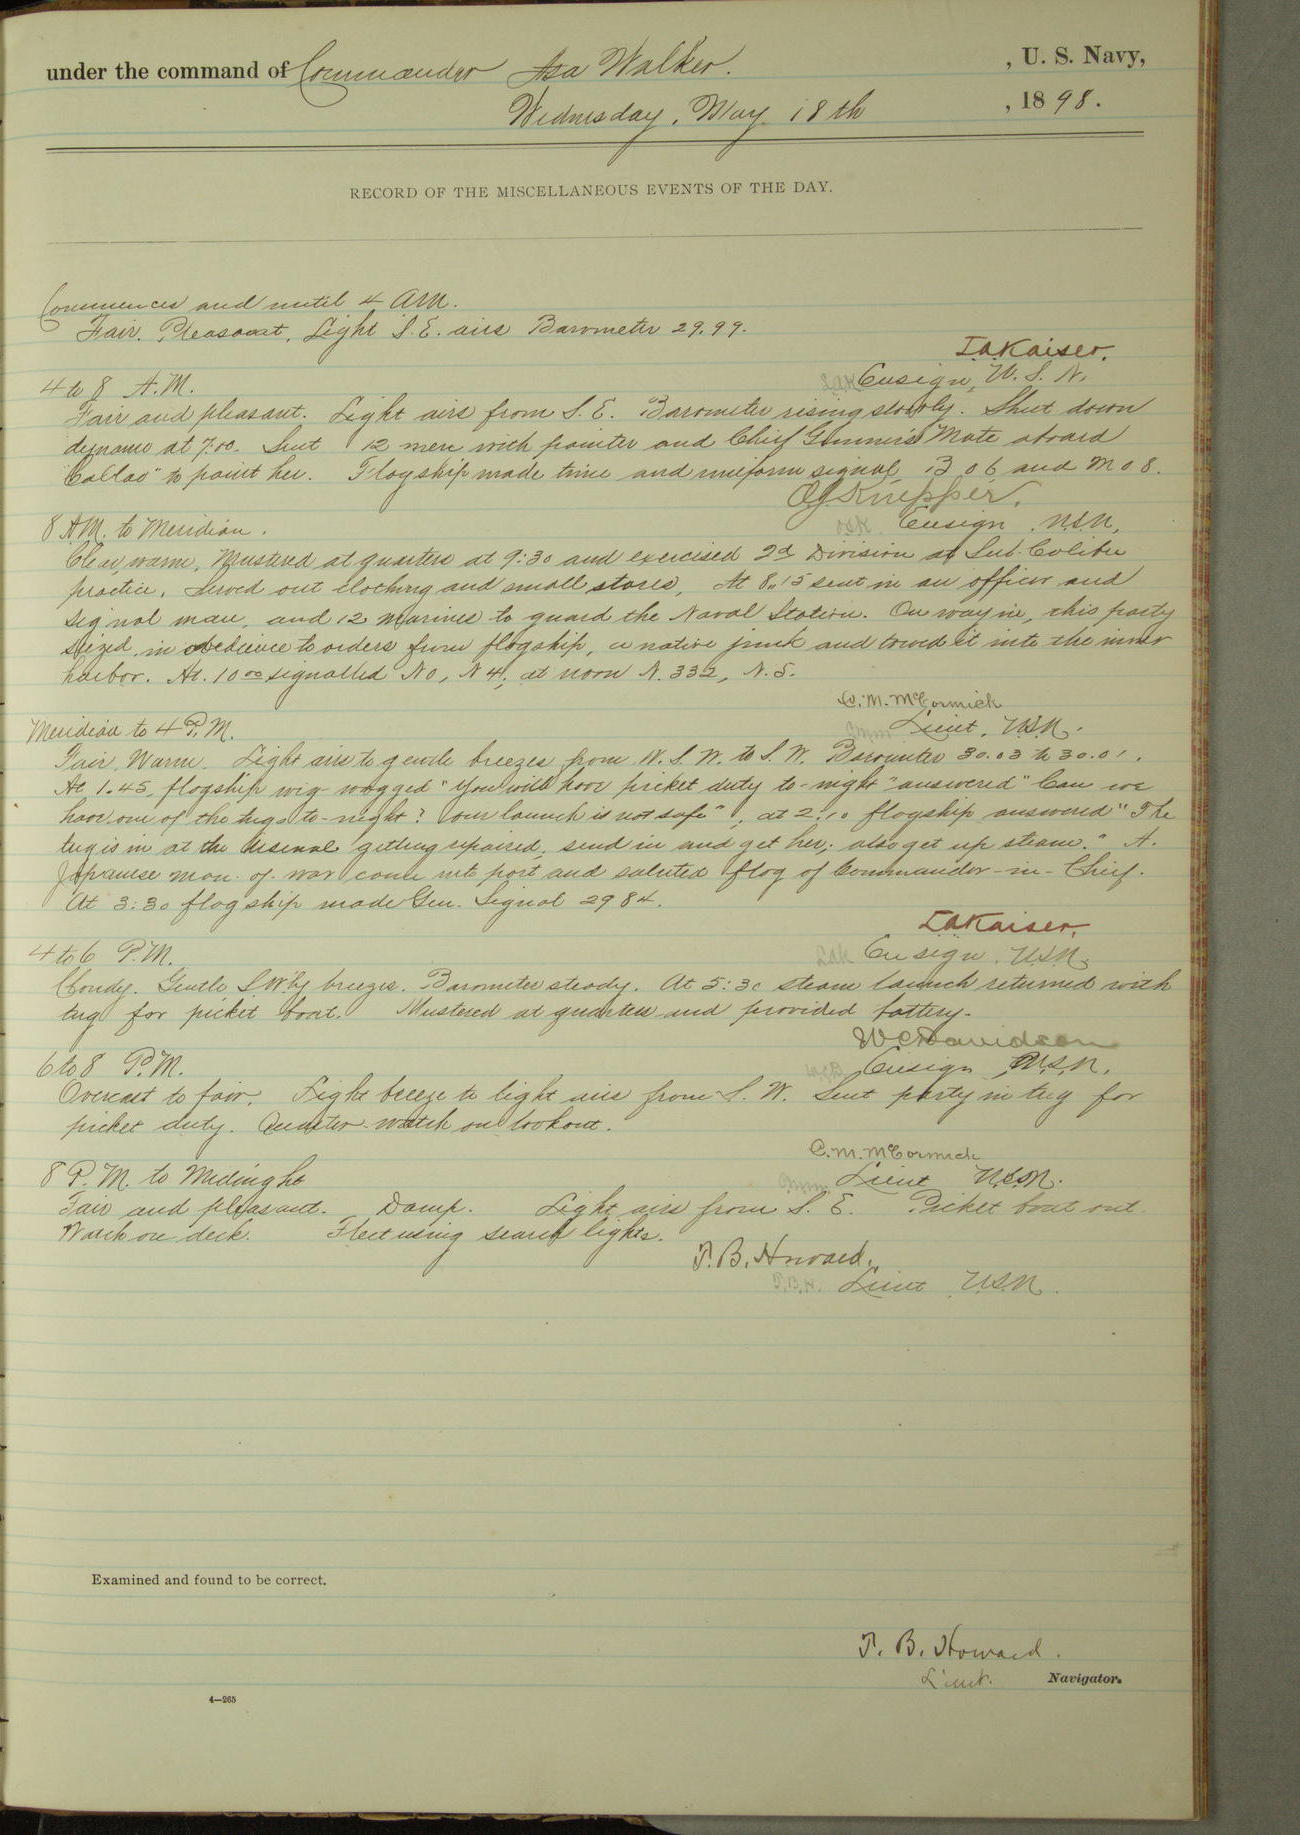 under the command of Commander Asa Walker. , U. S. Navy,
Wednesday, May 18th , 1898.
RECORD OF THE MISCELLANEOUS EVENTS OF THE DAY.
Commences and until 4 AM.
Fair. Pleasant, Light S.E. airs Barometer 29.99.
L.A. Kaiser.
Ensign, U.S.N.
4 to 8 A.M.
Fair and pleasant. Light airs from S.E. Barometer rising slowly. Shut down
dynamo at 7.00. Sent 12 men with painter and Chief Gunner's Mate aboard
"Callao" to paint her. Flagship made time and uniform signal, B 06 and M 08.
O.S. Knepper.
Ensign U.S.N.
8 A.M. to Meridian.
Clear warm, Mustered at quarters at 9:30 and exercised 2d Division at Sub-Calibre
practice. Served out clothing and small stores, At 8.15 sent in an officer and
signal man, and 12 marines to guard the Naval Station. On way in, this party
siezed, in obedience to orders from flagship, a native junk and towed it into the inner
harbor. At. 10 00 signalled No, N 4; at noon N. 332, N. 5.
C. M. McCormick
Lieut, U.S.N.
Meridian to 4 P.M.
Fair. Warm. Light airs to gentle breezes from W.S.W. to S.W. Barometer 30.03 to 30.01.
At 1.45, flagship wig-wagged "You will have picket duty to-night" answered "Can we
have one of the tugs to-night? our launch is not safe"; at 2:10 flagship answered "The
tug is in at the Arsenal getting repaired; send in and get her; also get up steam." A.
Japanese man-of-war came into port and saluted flag of Commander-in-Chief.
At 3:30 flagship made Gen. Signal 2984.
L.A. Kaiser.
Ensign. U.S.N.
4 to 6 P.M.
Cloudy. Gentle SW'ly breezes. Barometer steady. At 5:30 steam launch returned with
tug for picket boat. Mustered at quarters and provided battery.
W.C. Davidson
Ensign U.S.N.
6 to 8 P.M.
Overcast to fair. Light breeze to light airs from S.W. Sent party in tug for
picket duty. Quarter watch on lookout.
C.M. McCormick
Lieut U.S.N.
8 P.M. to Midnight
Fair and pleasant. Damp. Light airs from S.E. Picket boat out.
Watch on deck. Fleet using search lights.
T.B. Howard.
T.B.H. Lieut U.S.N.
Examined and found to be correct.
T. B. Howard.
Lieut. Navigator.
4—265